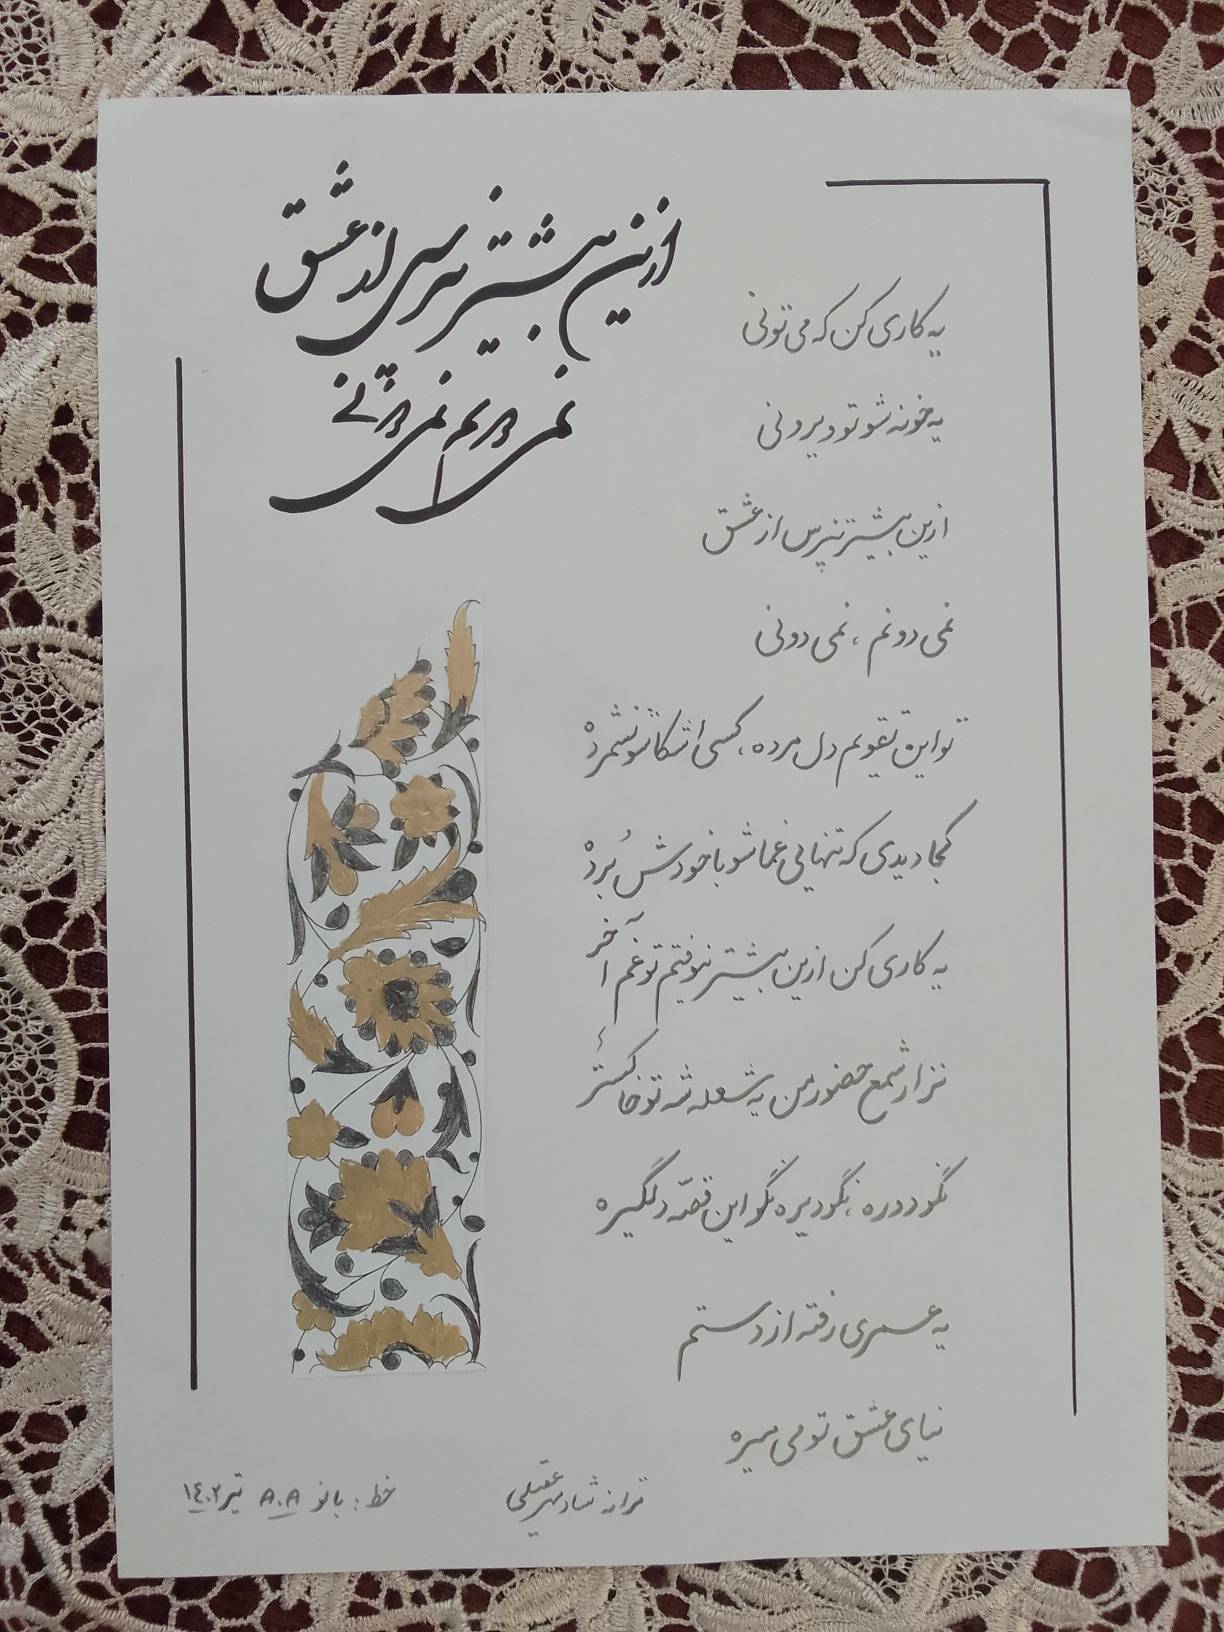 ازین بیشتر نپرس از عشق
نمی دونم نمی دونی
یه کاری کن که می تونی
یه خونه شو تو ویرونی
ازین بیشتر نپرس از عشق
نمی دونم ، نمی دونی
تو این تقویم دل مرده ، کسی اشکاشو نشمردْ
کجا دیدی که تنهایی غماشو با خودش بُردْ
یه کاری کن ازین بیشتر نیوفتم تو غم آخر
نزار شمع حضور من یه شعله شه تو خاکستر
نگو دوره ، نگو دیره نگو این قصّه دلگیره
یه عمری رفته از دستم
نیای عشق تو می میره
ترانه شادمهر عقیلی
خط : بانو A.A تیر ۱۴۰۲